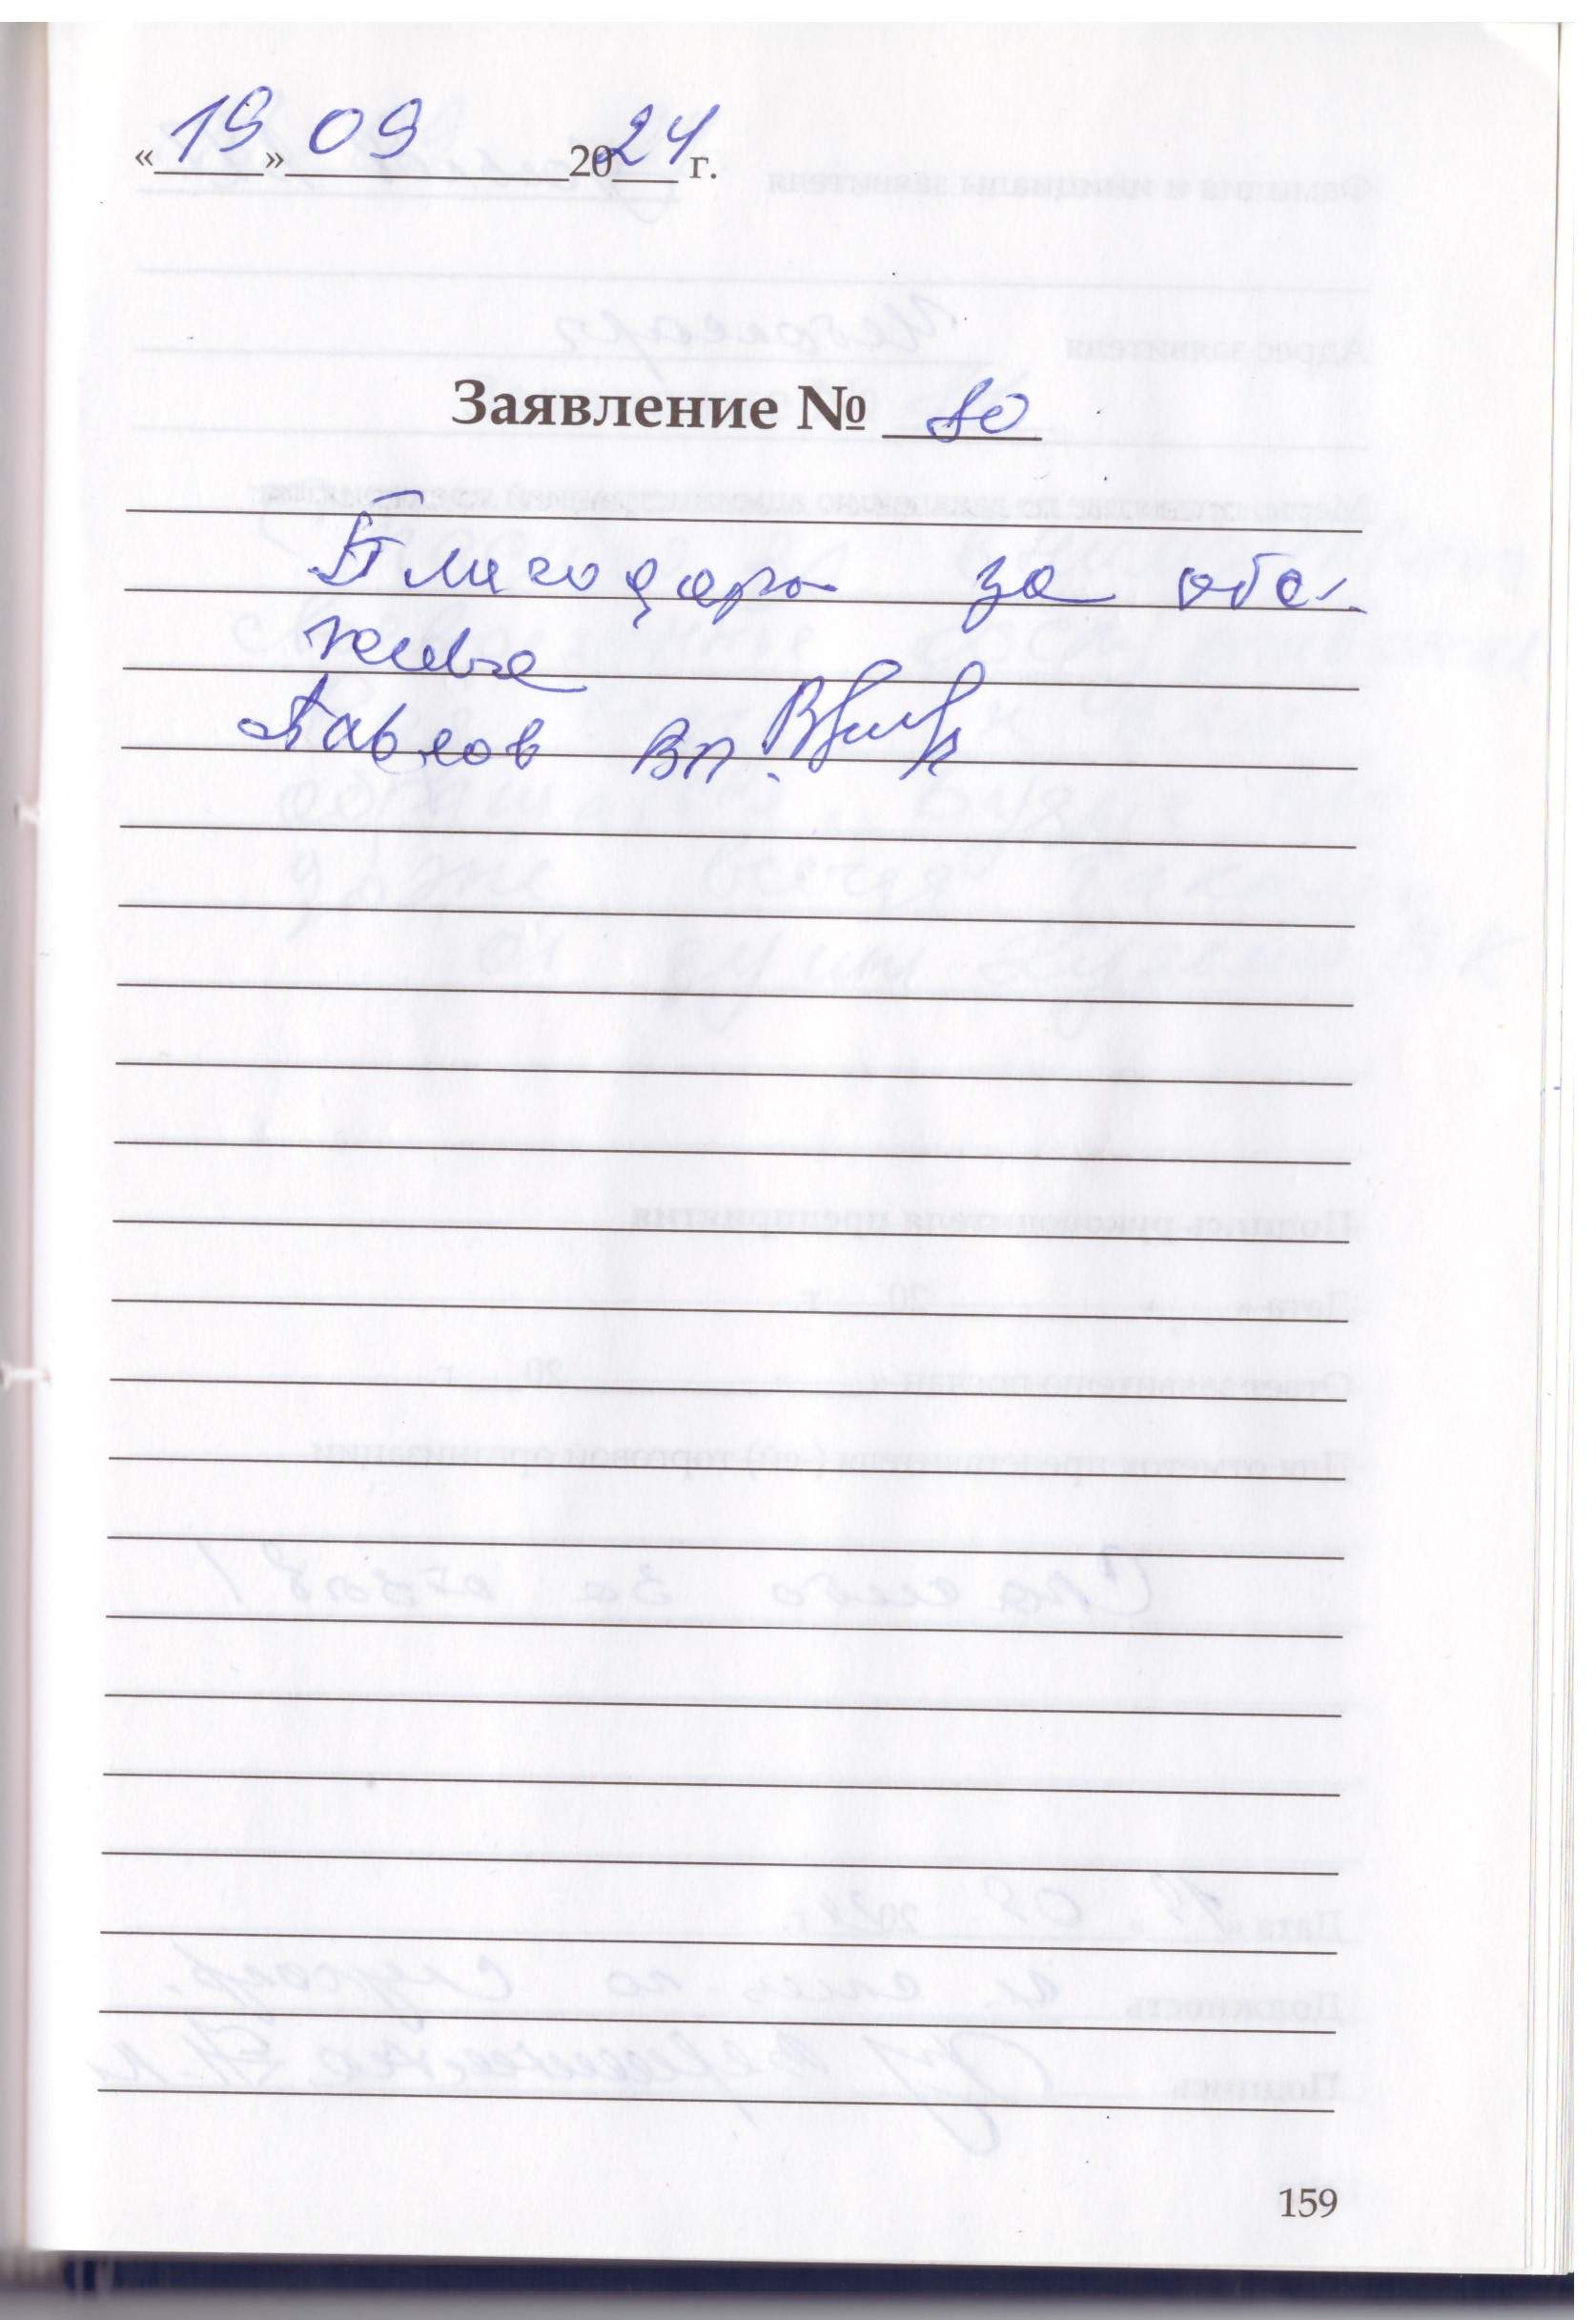 «19» 09 2024 г.
Заявление № 80
Благодарю за обс-
живае
Павлов В.П.
159